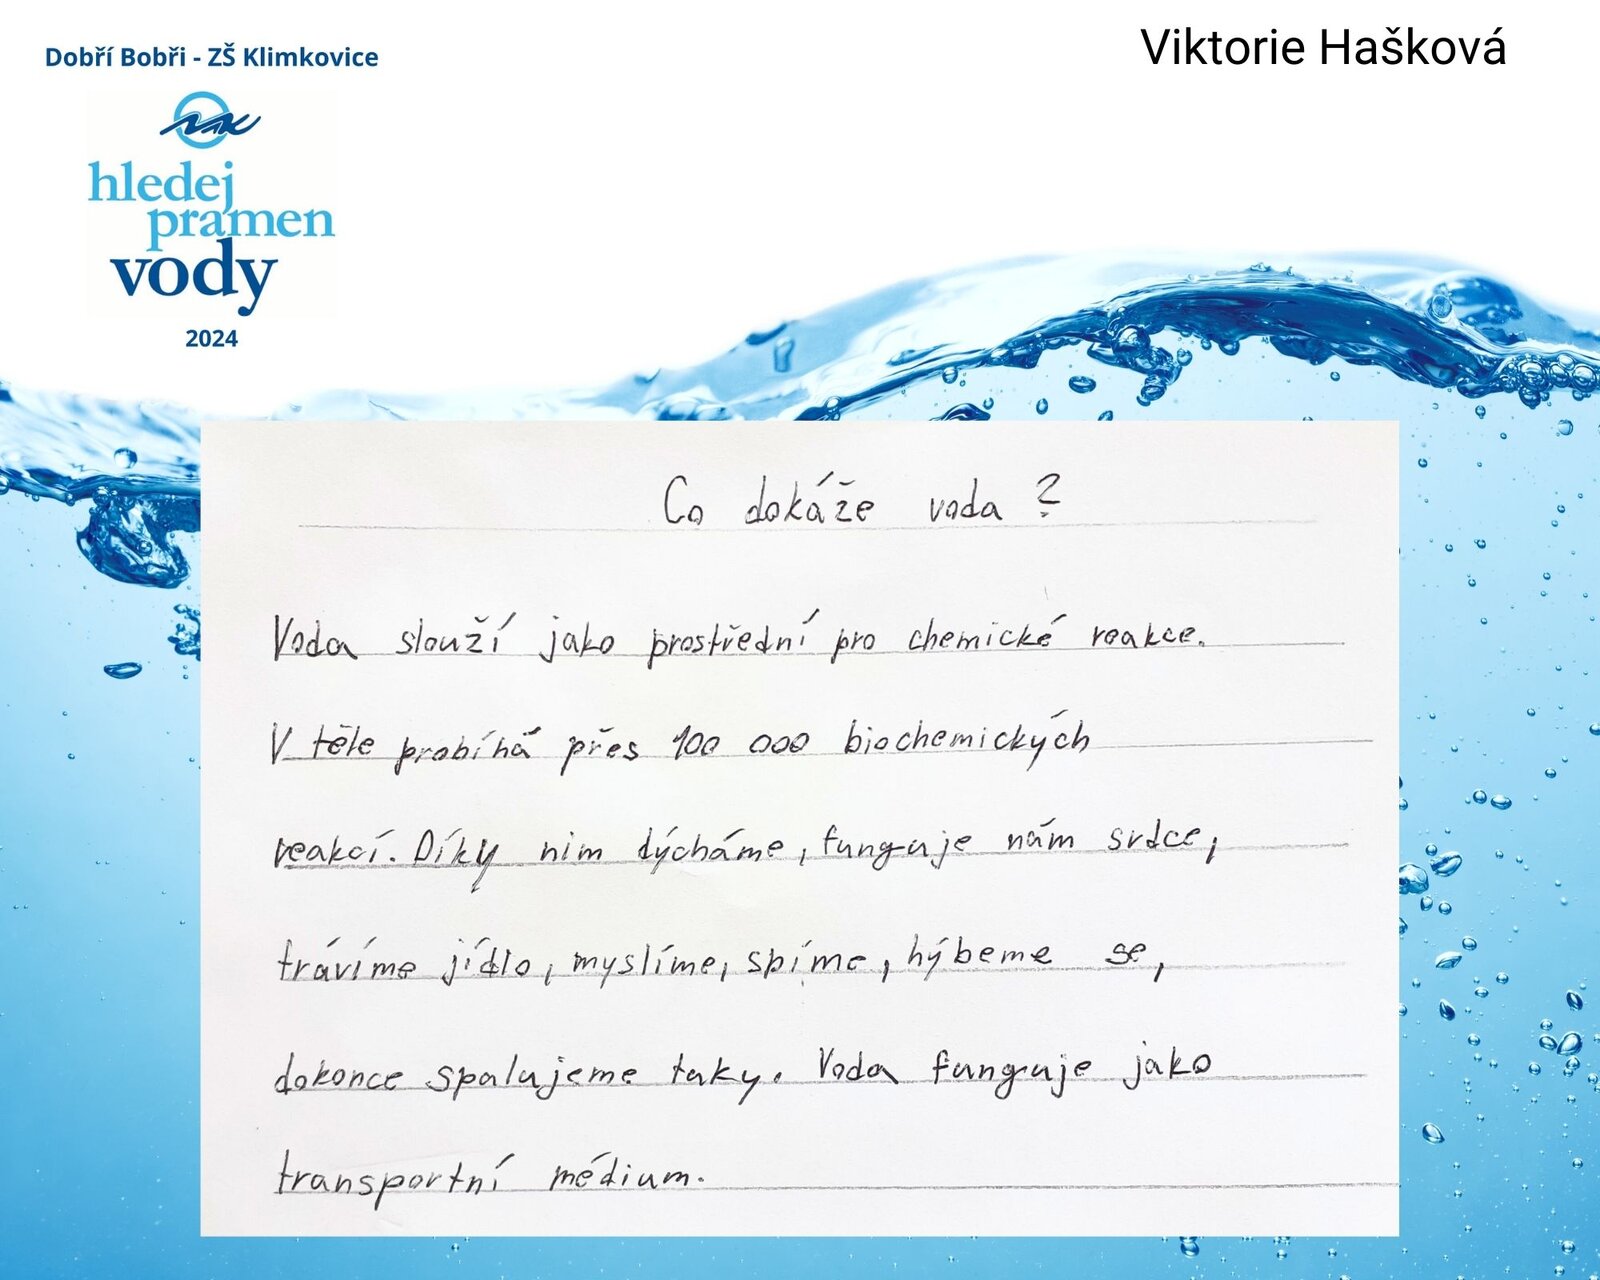 Dobří Bobři - ZŠ Klimkovice
Viktorie Hašková
hledej
pramen
vody
2024
Co dokáže voda ?
Voda slouží jako prostřední pro chemické reakce.
V těle probíhá přes 100 000 biochemických
reakcí. Díky nim dýcháme, funguje nám srdce,
trávíme jídlo, myslíme, spíme, hýbeme se,
dokonce spalujeme tuky. Voda funguje jako
transportní médium.